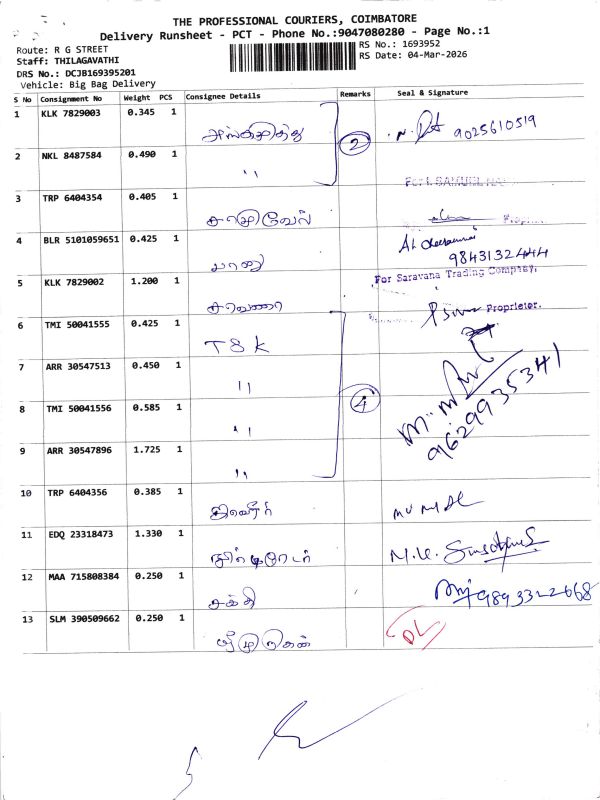 THE PROFESSIONAL COURIERS, COIMBATORE
Delivery Runsheet - PCT - Phone No.:9047080280 - Page No.:1
Route: R G STREET
RS No.: 1693952
Staff: THILAGAVATHI
RS Date: 04-Mar-2026
DRS No.: DCJB169395201
Vehicle: Big Bag Delivery
S No Consignment No Weight PCS Consignee Details Remarks Seal & Signature
1 KLK 7829003 0.345 1 2 9025610519
2 NKL 8487584 0.490 1 "
3 TRP 6404354 0.405 1 சாமுவேல்
4 BLR 5101059651 0.425 1 பானு 9843132444
For Saravana Trading Company,
5 KLK 7829002 1.200 1 சரவணா Proprietor.
6 TMI 50041555 0.425 1 TSK
7 ARR 30547513 0.450 1 " 4 9629935341
8 TMI 50041556 0.585 1 "
9 ARR 30547896 1.725 1 "
10 TRP 6404356 0.385 1
11 EDQ 23318473 1.330 1
12 MAA 715808384 0.250 1 சக்தி 9893322668
13 SLM 390509662 0.250 1 DL